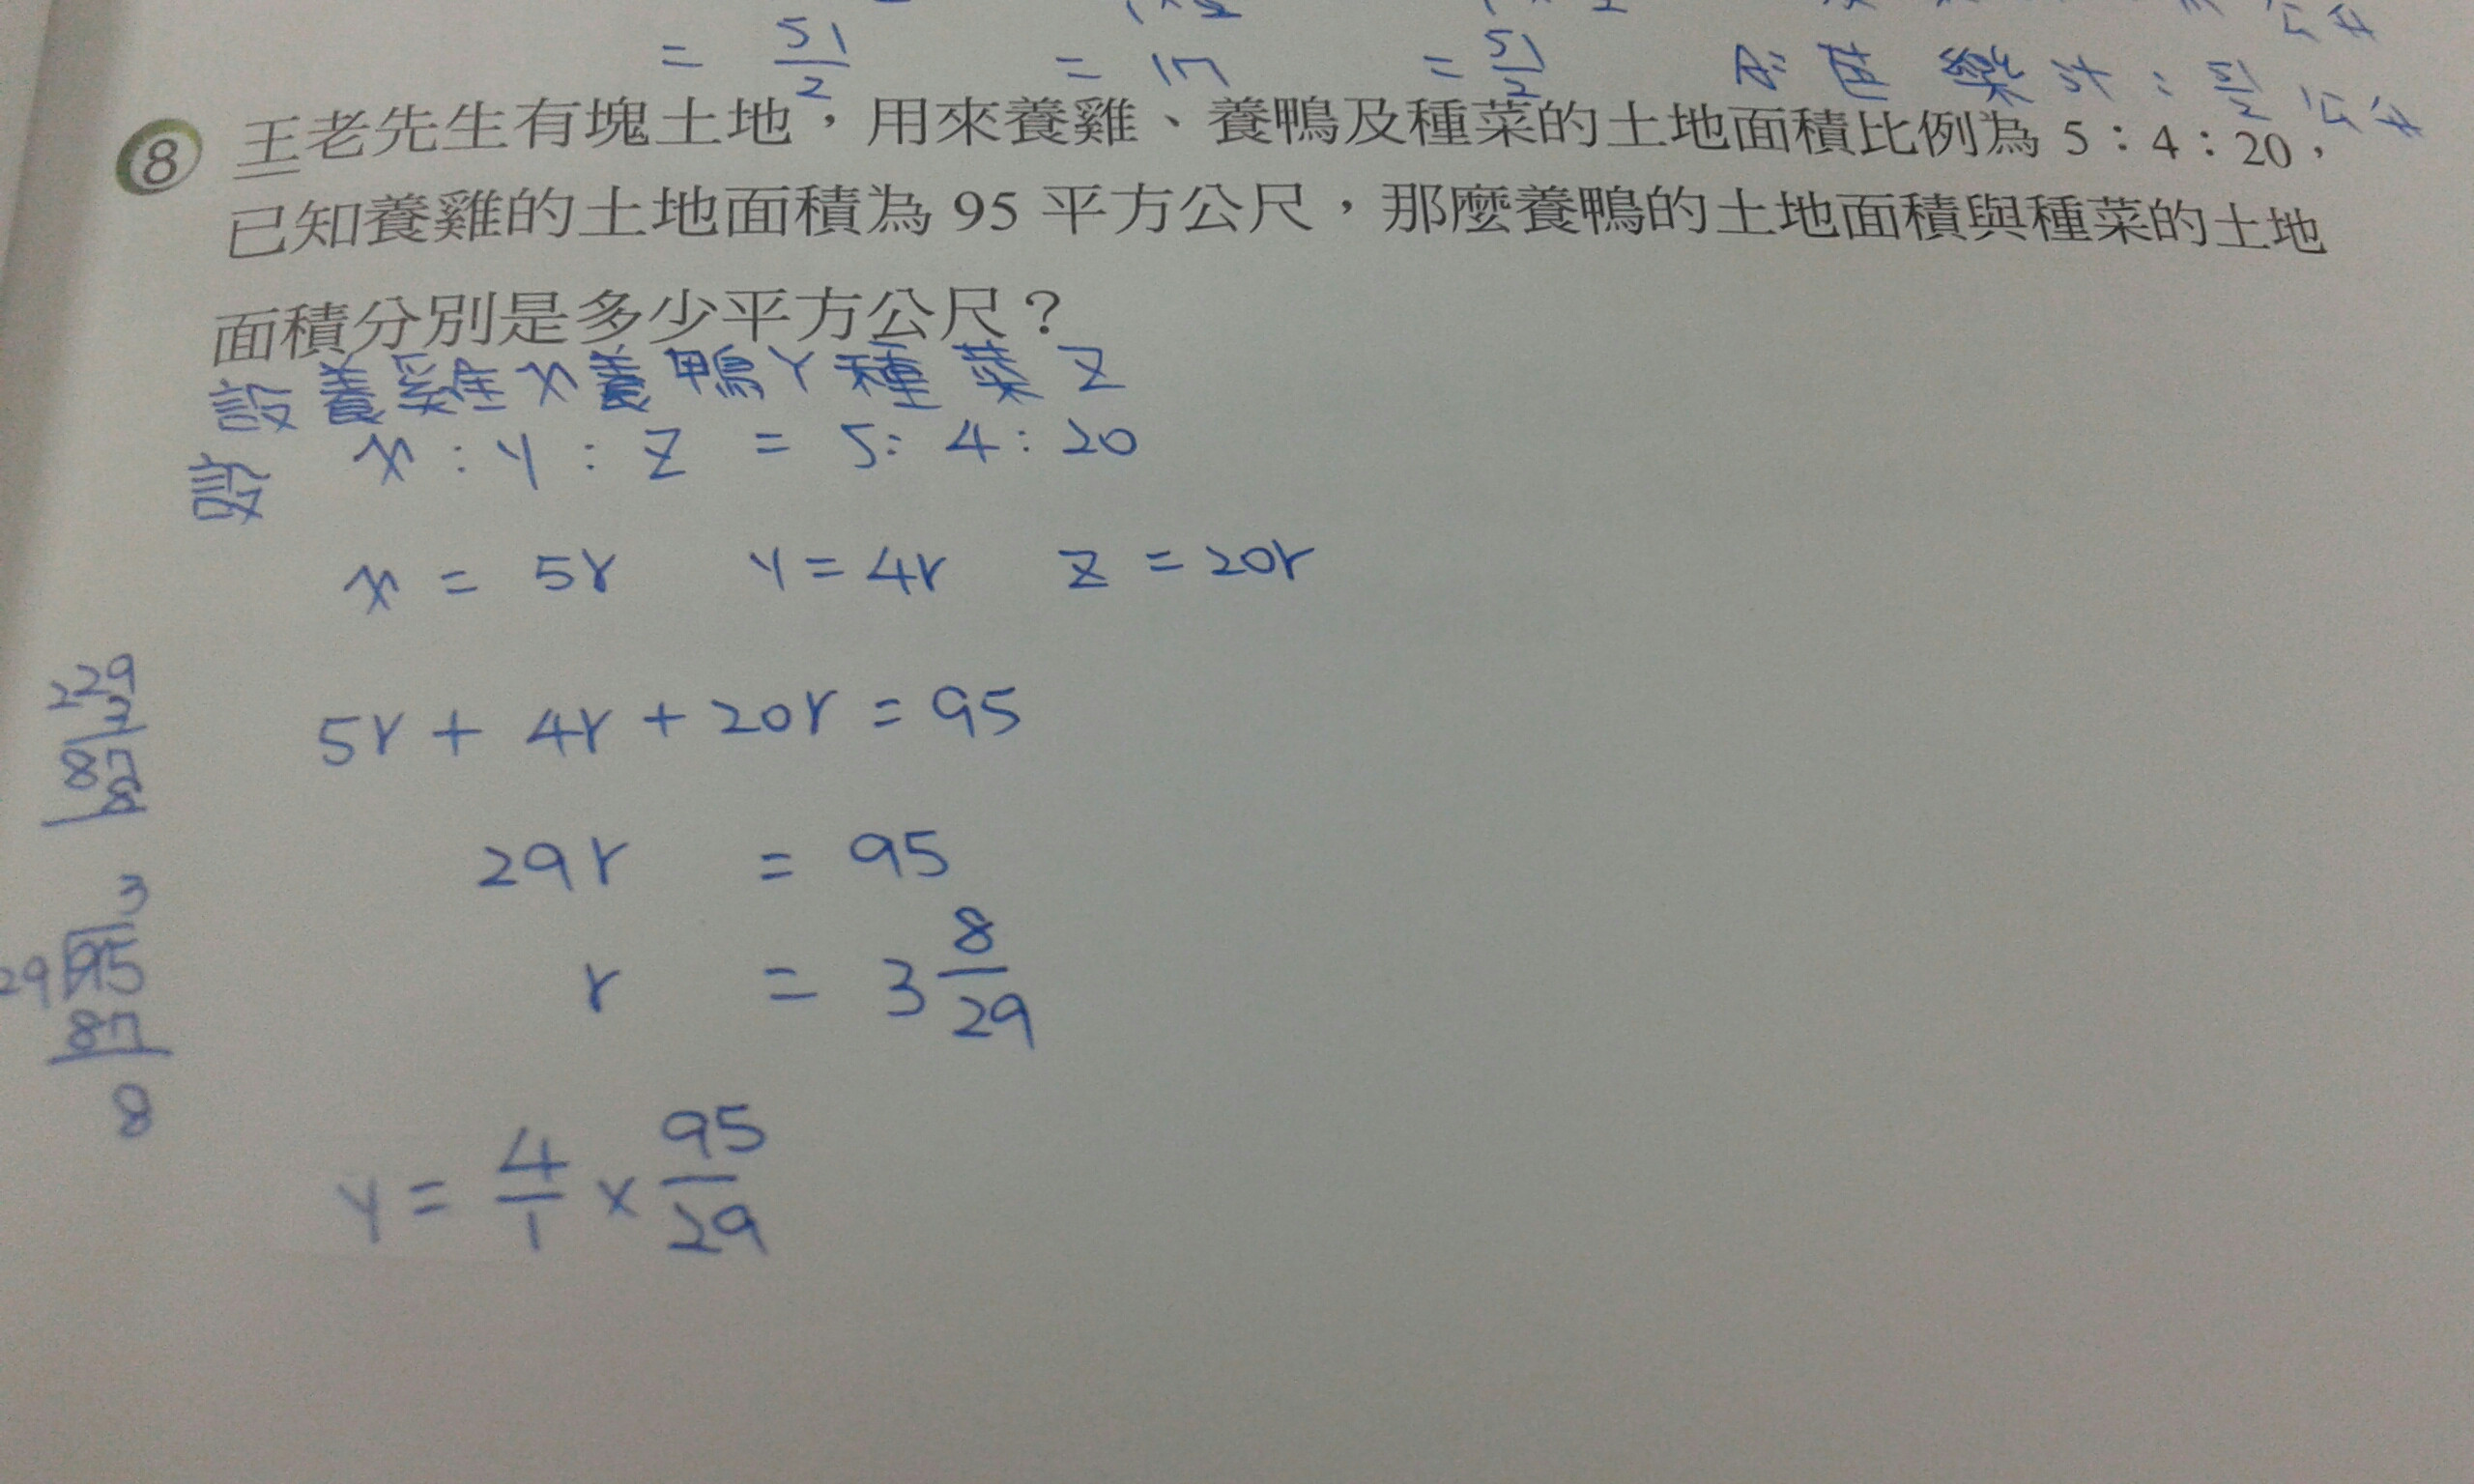 = 51/2 = 17 = 51/2 A: 芭樂汁: 51/2 公升
8 王老先生有塊土地，用來養雞、養鴨及種菜的土地面積比例為 5：4：20，
已知養雞的土地面積為 95 平方公尺，那麼養鴨的土地面積與種菜的土地
面積分別是多少平方公尺？
設養雞X養鴨Y種菜Z
設 X : Y : Z = 5 : 4 : 20
X = 5r Y = 4r Z = 20r
5r + 4r + 20r = 95
29r = 95
r = 3 8/29
Y = 4/1 × 95/29
29
87
3
29 95
87
8